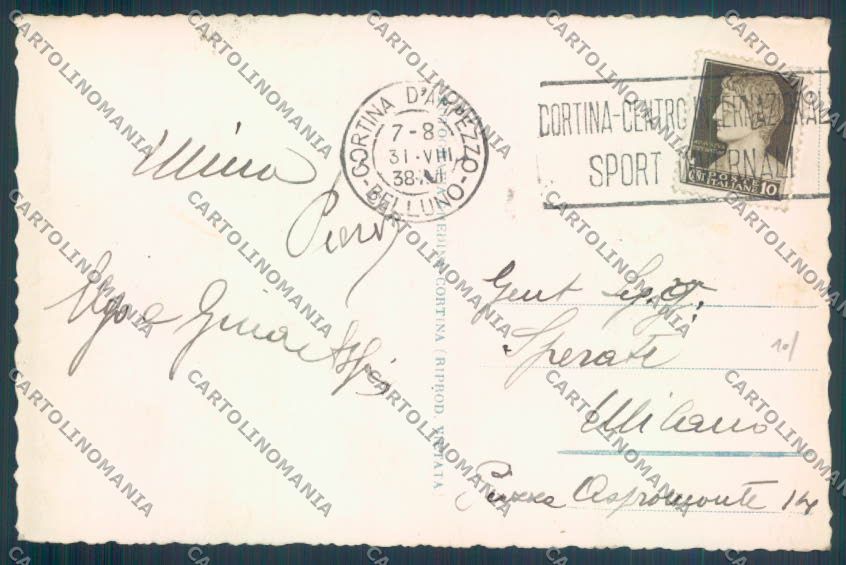 CORTINA D'AMPEZZO
7-8
31·VIII
38·XVI
BELLUNO
CORTINA-CENTRO INTERNAZIONALE
SPORT INVERNALI
POSTE
ITALIANE
CENT. 10
Mina
Piero
Gina e
Gent. Sigg.
Sperati
Milano
Piazza Aspromonte 14
CORTINA (RIPROD. VIETATA)
CARTOLINOMANIA